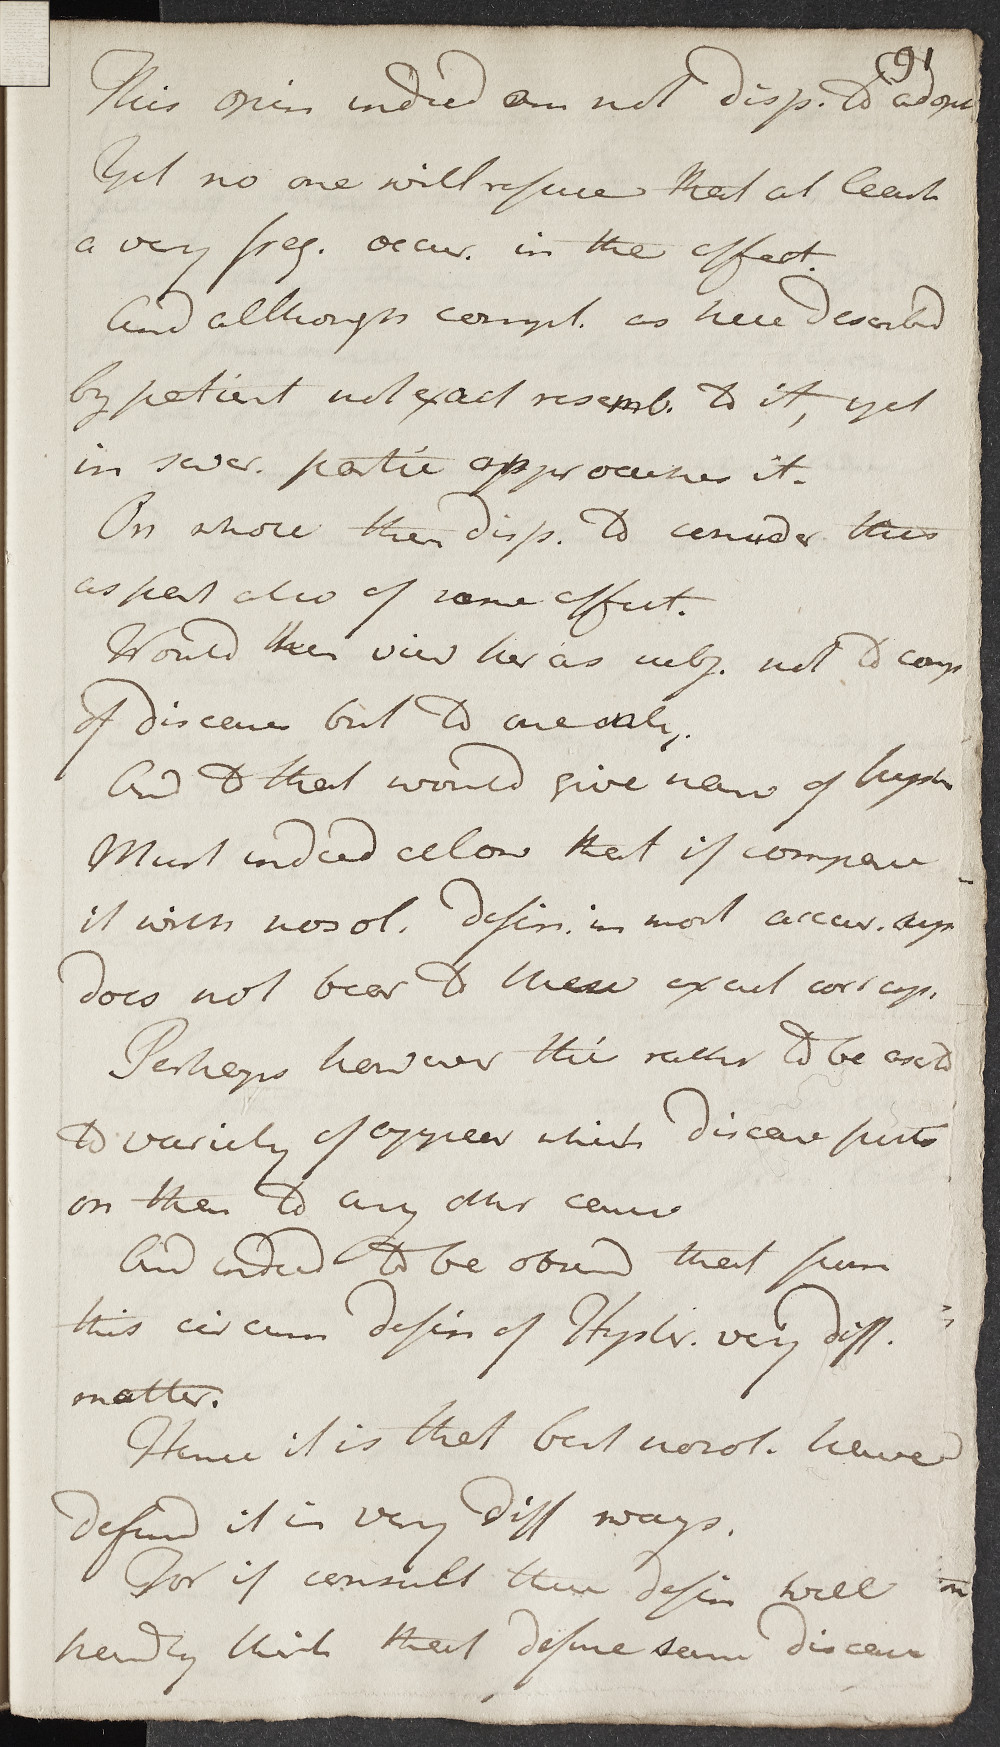 91
This opin indeed am not disp. to adopt
Yet no one will refuse that at least
a very freq. occur. in the affect.
And although compt. as here described
by patient not exact resemb. to it, yet
in sever. partic approaches it.
On whole then disp. to consider this
as part also of same affect.
Would then view her as subj. not to comp
of diseases but to one only.
And to that would give name of hyst
Must indeed allow that if compare
it with nosol. defin. in most accur. auth
does not bear to these exact corresp.
Perhaps however this rather to be ascd
to variety of appear which disease puts
on than to any other cause
And indeed to be obsved that from
this circum defin of Hyster. very diff.
matter.
Hence it is that best nosol. have
defined it in very diff ways.
For if consult their defin will
hardly think that define same disease